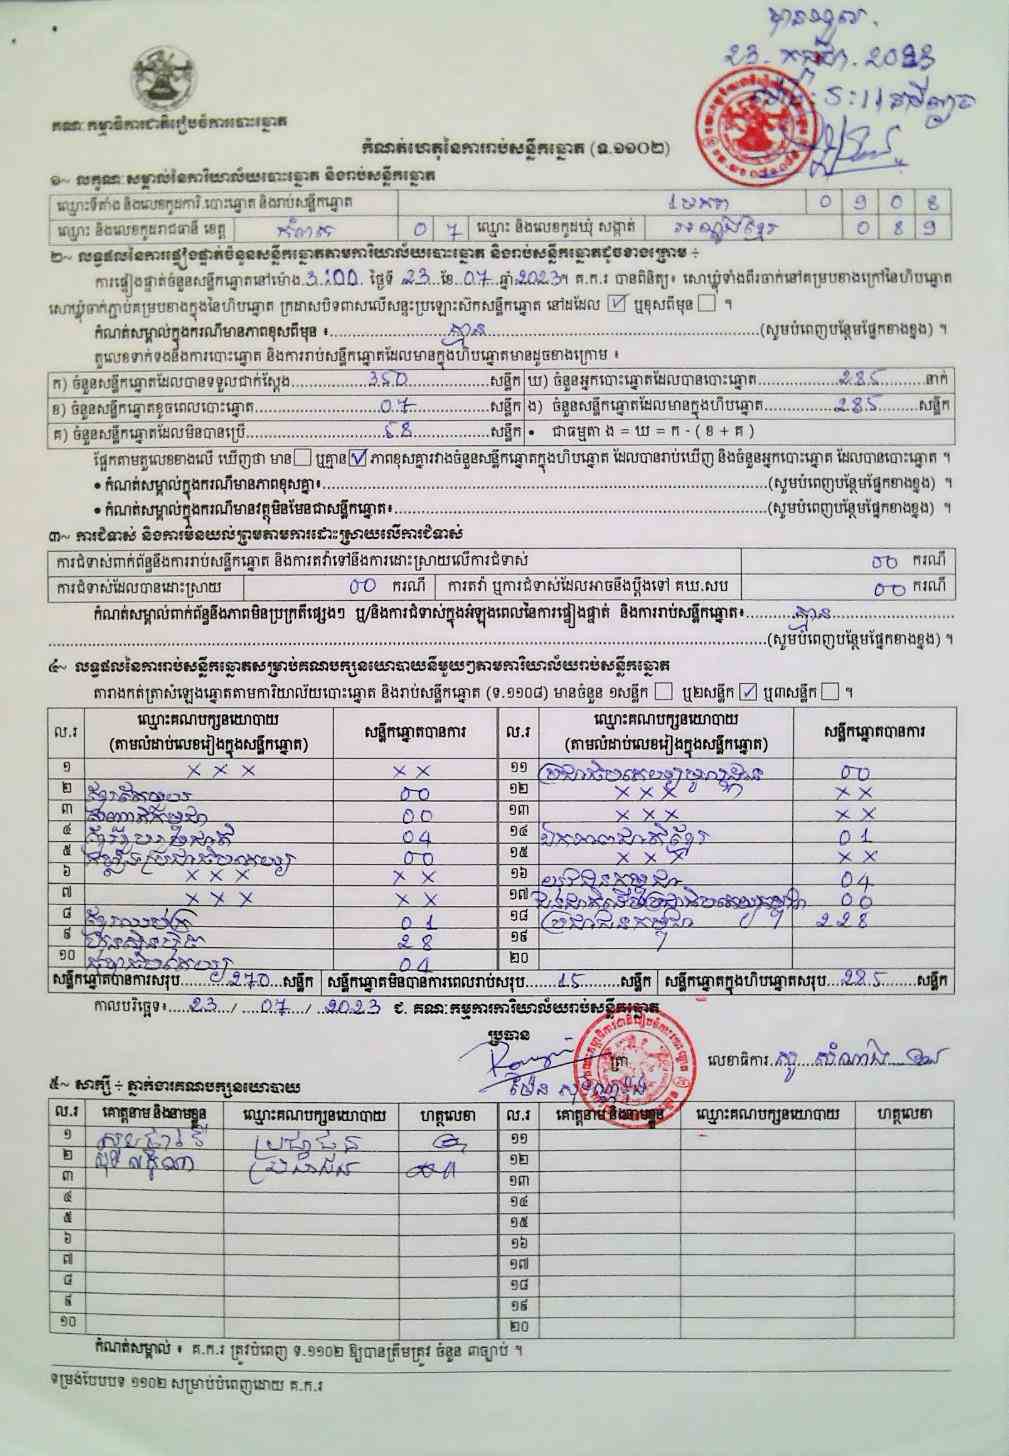 បានទទួល
23. កក្កដា. 2023
ម៉ោង: 5:11 នាទីល្ងាច
គណៈកម្មាធិការជាតិរៀបចំការបោះឆ្នោត
កំណត់ហេតុនៃការរាប់សន្លឹកឆ្នោត (ទ.១១០២)
១~ លក្ខណៈសម្គាល់នៃការិយាល័យបោះឆ្នោត និងរាប់សន្លឹកឆ្នោត
ឈ្មោះទីតាំង និងលេខកូដការិ.បោះឆ្នោត និងរាប់សន្លឹកឆ្នោត 0 9 0 8
ឈ្មោះ និងលេខកូដរាជធានី ខេត្ត កំពត 0 7 ឈ្មោះ និងលេខកូដឃុំ សង្កាត់ អណ្ដូងខ្មែរ 0 8 9
២~ លទ្ធផលនៃការផ្ទៀងផ្ទាត់ចំនួនសន្លឹកឆ្នោតតាមការិយាល័យបោះឆ្នោត និងរាប់សន្លឹកឆ្នោតដូចខាងក្រោម ÷
ការផ្ទៀងផ្ទាត់ចំនួនសន្លឹកឆ្នោតនៅម៉ោង 3:00 ថ្ងៃទី 23 ខែ 07 ឆ្នាំ 2023។ គ.ក.រ បានពិនិត្យ៖ សោឃ្លុំទាំងពីរចាក់នៅគម្របខាងក្រៅនៃហិបឆ្នោត
សោឃ្លុំចាក់ភ្ជាប់គម្របខាងក្នុងនៃហិបឆ្នោត ក្រដាសបិទពាសលើសន្ទះប្រឡោះស៊កសន្លឹកឆ្នោត នៅដដែល ☑ ឬខុសពីមុន ☐ ។
កំណត់សម្គាល់ក្នុងករណីមានភាពខុសពីមុន ៖ គ្មាន (សូមបំពេញបន្ថែមផ្នែកខាងខ្នង) ។
តួលេខទាក់ទងនឹងការបោះឆ្នោត និងការរាប់សន្លឹកឆ្នោតដែលមានក្នុងហិបឆ្នោតមានដូចខាងក្រោម ៖
ក) ចំនួនសន្លឹកឆ្នោតដែលបានទទួលជាក់ស្តែង 350 សន្លឹក ឃ) ចំនួនអ្នកបោះឆ្នោតដែលបានបោះឆ្នោត 285 នាក់
ខ) ចំនួនសន្លឹកឆ្នោតខូចពេលបោះឆ្នោត 07 សន្លឹក ង) ចំនួនសន្លឹកឆ្នោតដែលមានក្នុងហិបឆ្នោត 285 សន្លឹក
គ) ចំនួនសន្លឹកឆ្នោតដែលមិនបានប្រើ 58 សន្លឹក • ជាធម្មតា ង = ឃ = ក - ( ខ + គ )
ផ្អែកតាមតួលេខខាងលើ ឃើញថា មាន ☐ ឬគ្មាន ☑ ភាពខុសគ្នារវាងចំនួនសន្លឹកឆ្នោតក្នុងហិបឆ្នោត ដែលបានរាប់ឃើញ និងចំនួនអ្នកបោះឆ្នោត ដែលបានបោះឆ្នោត ។
• កំណត់សម្គាល់ក្នុងករណីមានភាពខុសគ្នា៖ (សូមបំពេញបន្ថែមផ្នែកខាងខ្នង) ។
• កំណត់សម្គាល់ក្នុងករណីមានវត្ថុមិនមែនជាសន្លឹកឆ្នោត៖ (សូមបំពេញបន្ថែមផ្នែកខាងខ្នង) ។
៣~ ការជំទាស់ និងការមិនយល់ព្រមតាមការដោះស្រាយលើការជំទាស់
ការជំទាស់ពាក់ព័ន្ធនឹងការរាប់សន្លឹកឆ្នោត និងការតវ៉ាទៅនឹងការដោះស្រាយលើការជំទាស់ 00 ករណី
ការជំទាស់ដែលបានដោះស្រាយ 00 ករណី ការតវ៉ា ឬការជំទាស់ដែលអាចនឹងប្តឹងទៅ គឃ.សប 00 ករណី
កំណត់សម្គាល់ពាក់ព័ន្ធនឹងភាពមិនប្រក្រតីផ្សេងៗ ឬ/និងការជំទាស់ក្នុងអំឡុងពេលនៃការផ្ទៀងផ្ទាត់ និងការរាប់សន្លឹកឆ្នោត៖ គ្មាន
(សូមបំពេញបន្ថែមផ្នែកខាងខ្នង) ។
៤~ លទ្ធផលនៃការរាប់សន្លឹកឆ្នោតសម្រាប់គណបក្សនយោបាយនីមួយៗតាមការិយាល័យរាប់សន្លឹកឆ្នោត
តារាងកត់ត្រាសំឡេងឆ្នោតតាមការិយាល័យបោះឆ្នោត និងរាប់សន្លឹកឆ្នោត (ទ.១១០៨) មានចំនួន ១សន្លឹក ☐ ឬ២សន្លឹក ☑ ឬ៣សន្លឹក ☐ ។
ល.រ ឈ្មោះគណបក្សនយោបាយ (តាមលំដាប់លេខរៀងក្នុងសន្លឹកឆ្នោត) សន្លឹកឆ្នោតបានការ ល.រ ឈ្មោះគណបក្សនយោបាយ (តាមលំដាប់លេខរៀងក្នុងសន្លឹកឆ្នោត) សន្លឹកឆ្នោតបានការ
១ × × × × × ១១ ប្រជាធិបតេយ្យមូលដ្ឋាន 00
២ ខ្មែរតែមួយ 00 ១២ × × × × ×
៣ 00 ១៣ × × × × ×
៤ ខ្មែររួបរួមជាតិ 04 ១៤ ឯកភាពជាតិខ្មែរ 01
៥ សំបុកឃ្មុំប្រជាធិបតេយ្យ 00 ១៥ × × × × ×
៦ × × × × × ១៦ យុវជនកម្ពុជា 04
៧ × × × × × ១៧ ជនជាតិដើមប្រជាធិបតេយ្យកម្ពុជា 00
៨ ខ្មែរឈប់ក្រ 01 ១៨ ប្រជាជនកម្ពុជា 228
៩ ហ៊្វុនស៊ិនប៉ិច 28 ១៩
១០ 04 ២០
សន្លឹកឆ្នោតបានការសរុប 270 សន្លឹក សន្លឹកឆ្នោតមិនបានការពេលរាប់សរុប 15 សន្លឹក សន្លឹកឆ្នោតក្នុងហិបឆ្នោតសរុប 285 សន្លឹក
កាលបរិច្ឆេទ៖ 23 / 07 / 2023 ជ. គណៈកម្មការការិយាល័យរាប់សន្លឹកឆ្នោត
ប្រធាន
ត្រា លេខាធិការ
៥~ សាក្សី ÷ ភ្នាក់ងារគណបក្សនយោបាយ
ល.រ គោត្តនាម និងនាមខ្លួន ឈ្មោះគណបក្សនយោបាយ ហត្ថលេខា ល.រ គោត្តនាម និងនាមខ្លួន ឈ្មោះគណបក្សនយោបាយ ហត្ថលេខា
១ ប្រជាជន ១១
២ ប្រជាជន ១២
៣ ១៣
៤ ១៤
៥ ១៥
៦ ១៦
៧ ១៧
៨ ១៨
៩ ១៩
១០ ២០
កំណត់សម្គាល់ ៖ គ.ក.រ ត្រូវបំពេញ ទ.១១០២ ឱ្យបានត្រឹមត្រូវ ចំនួន ៣ច្បាប់ ។
ទម្រង់បែបបទ ១១០២ សម្រាប់បំពេញដោយ គ.ក.រ